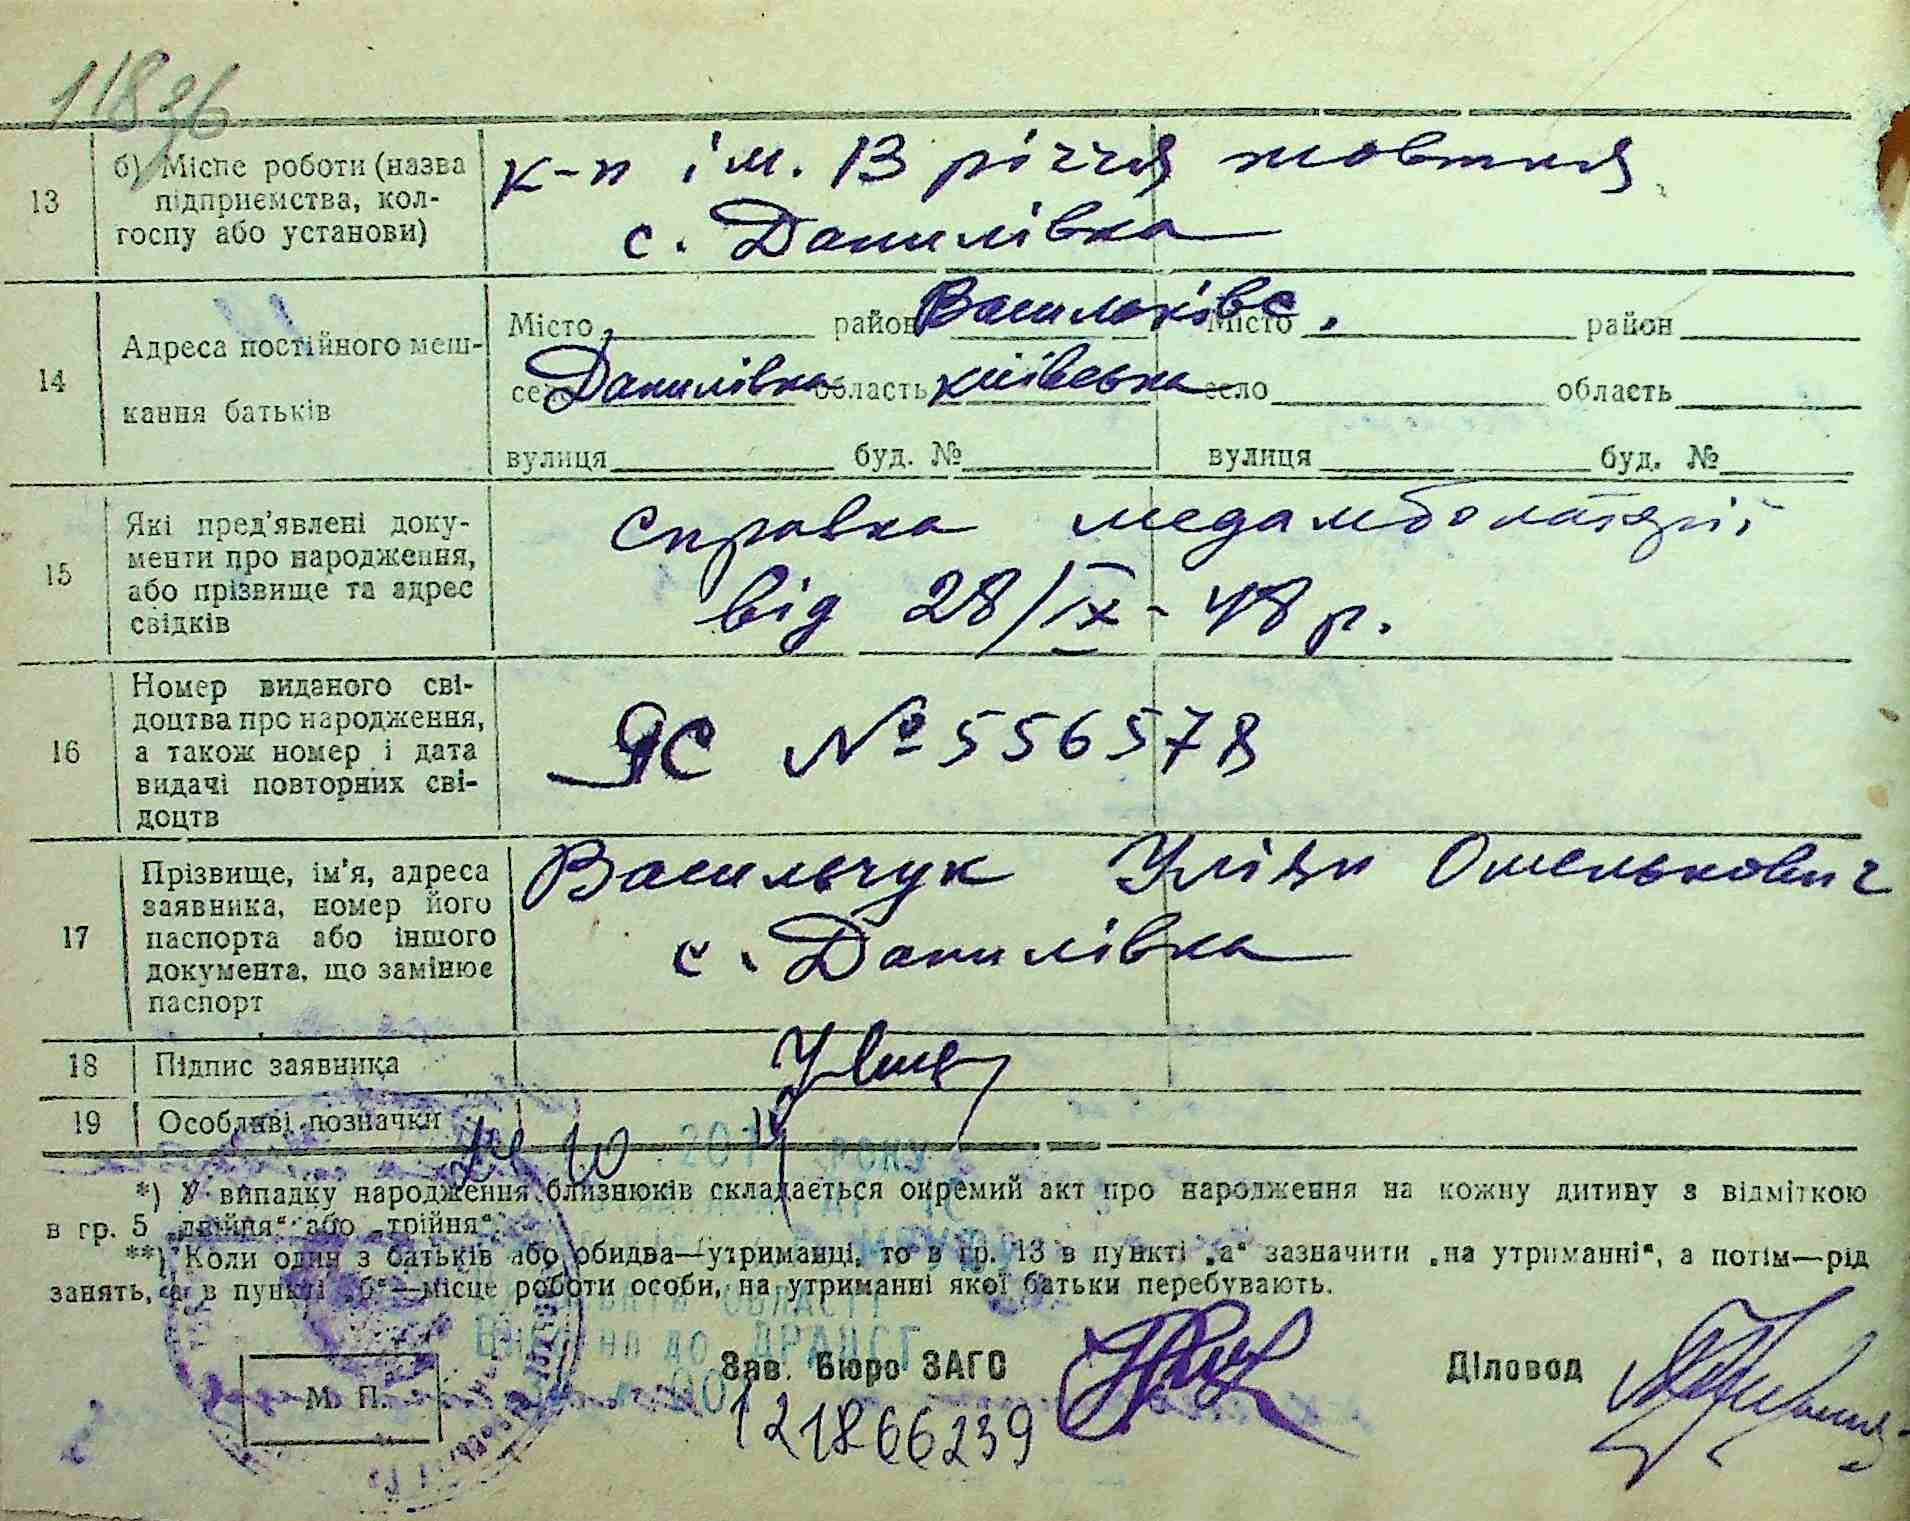 11836
13 б) Місце роботи (назва підприємства, колгоспу або установи)
к-п ім. 13 річчя жовтня
с. Данилівка
14 Адреса постійного мешкання батьків
Місто район Васильківс. Місто район
село Данилівка область київська село область
вулиця буд. № вулиця буд. №
15 Які пред'явлені документи про народження, або прізвище та адрес свідків
справка медамболаторії
від 28/IX - 48 р.
16 Номер виданого свідоцтва про народження, а також номер і дата видачі повторних свідоцтв
ЯС № 556578
17 Прізвище, ім'я, адреса заявника, номер його паспорта або іншого документа, що замінює паспорт
Васильчук Омелькович
с. Данилівка
18 Підпис заявника
19 Особливі позначки
10 2014 РОКУ
*) У випадку народження близнюків складається окремий акт про народження на кожну дитину з відміткою
в гр. 5 „двійня“ або „трійня“.
**) Коли один з батьків або обидва—утриманці, то в гр. 13 в пункті „а“ зазначити „на утриманні“, а потім—рід
занять, а в пункті „б“—місце роботи особи, на утриманні якої батьки перебувають.
ОБЛАСТІ
до ДРАЦСГ
М. П.
Зав. Бюро ЗАГС
Діловод
121866239